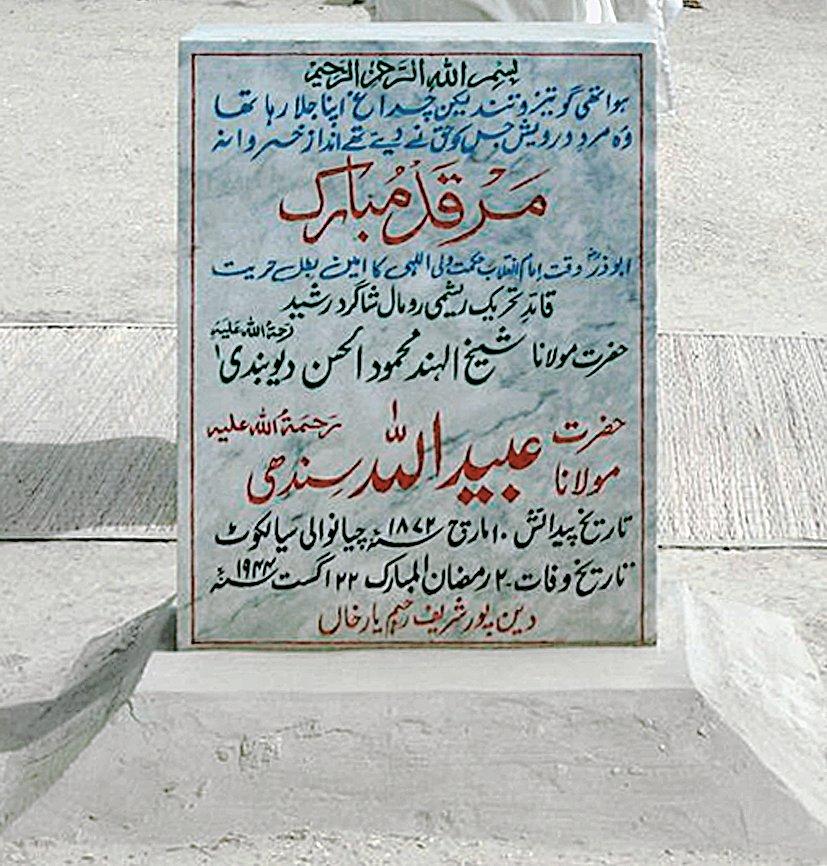 بسم الله الرحمن الرحيم
ہوا تھی گو تیز و تند لیکن چراغ اپنا جلا رہا تھا
وہ مرد درویش جس کو حق نے دیے تھے انداز خسروانہ
مَرقَدِ مُبارک
ابوذرؓ وقت امام انقلاب حکمت ولی اللہی کا امین بطل حریت
قائد تحریک ریشمی رومال شاگرد رشید
حضرت مولانا شیخ الہند محمود الحسن دیوبندی رحمۃ اللہ علیہ
حضرت مولانا عبید اللہ سندھی رحمۃ اللہ علیہ
تاریخ پیدائش ۱۰ مارچ ۱۸۷۲ سنہ چیانوالی سیالکوٹ
تاریخ وفات ۲ رمضان المبارک ۲۲ اگست ۱۹۴۴ سنہ
دین پور شریف رحیم یار خاں